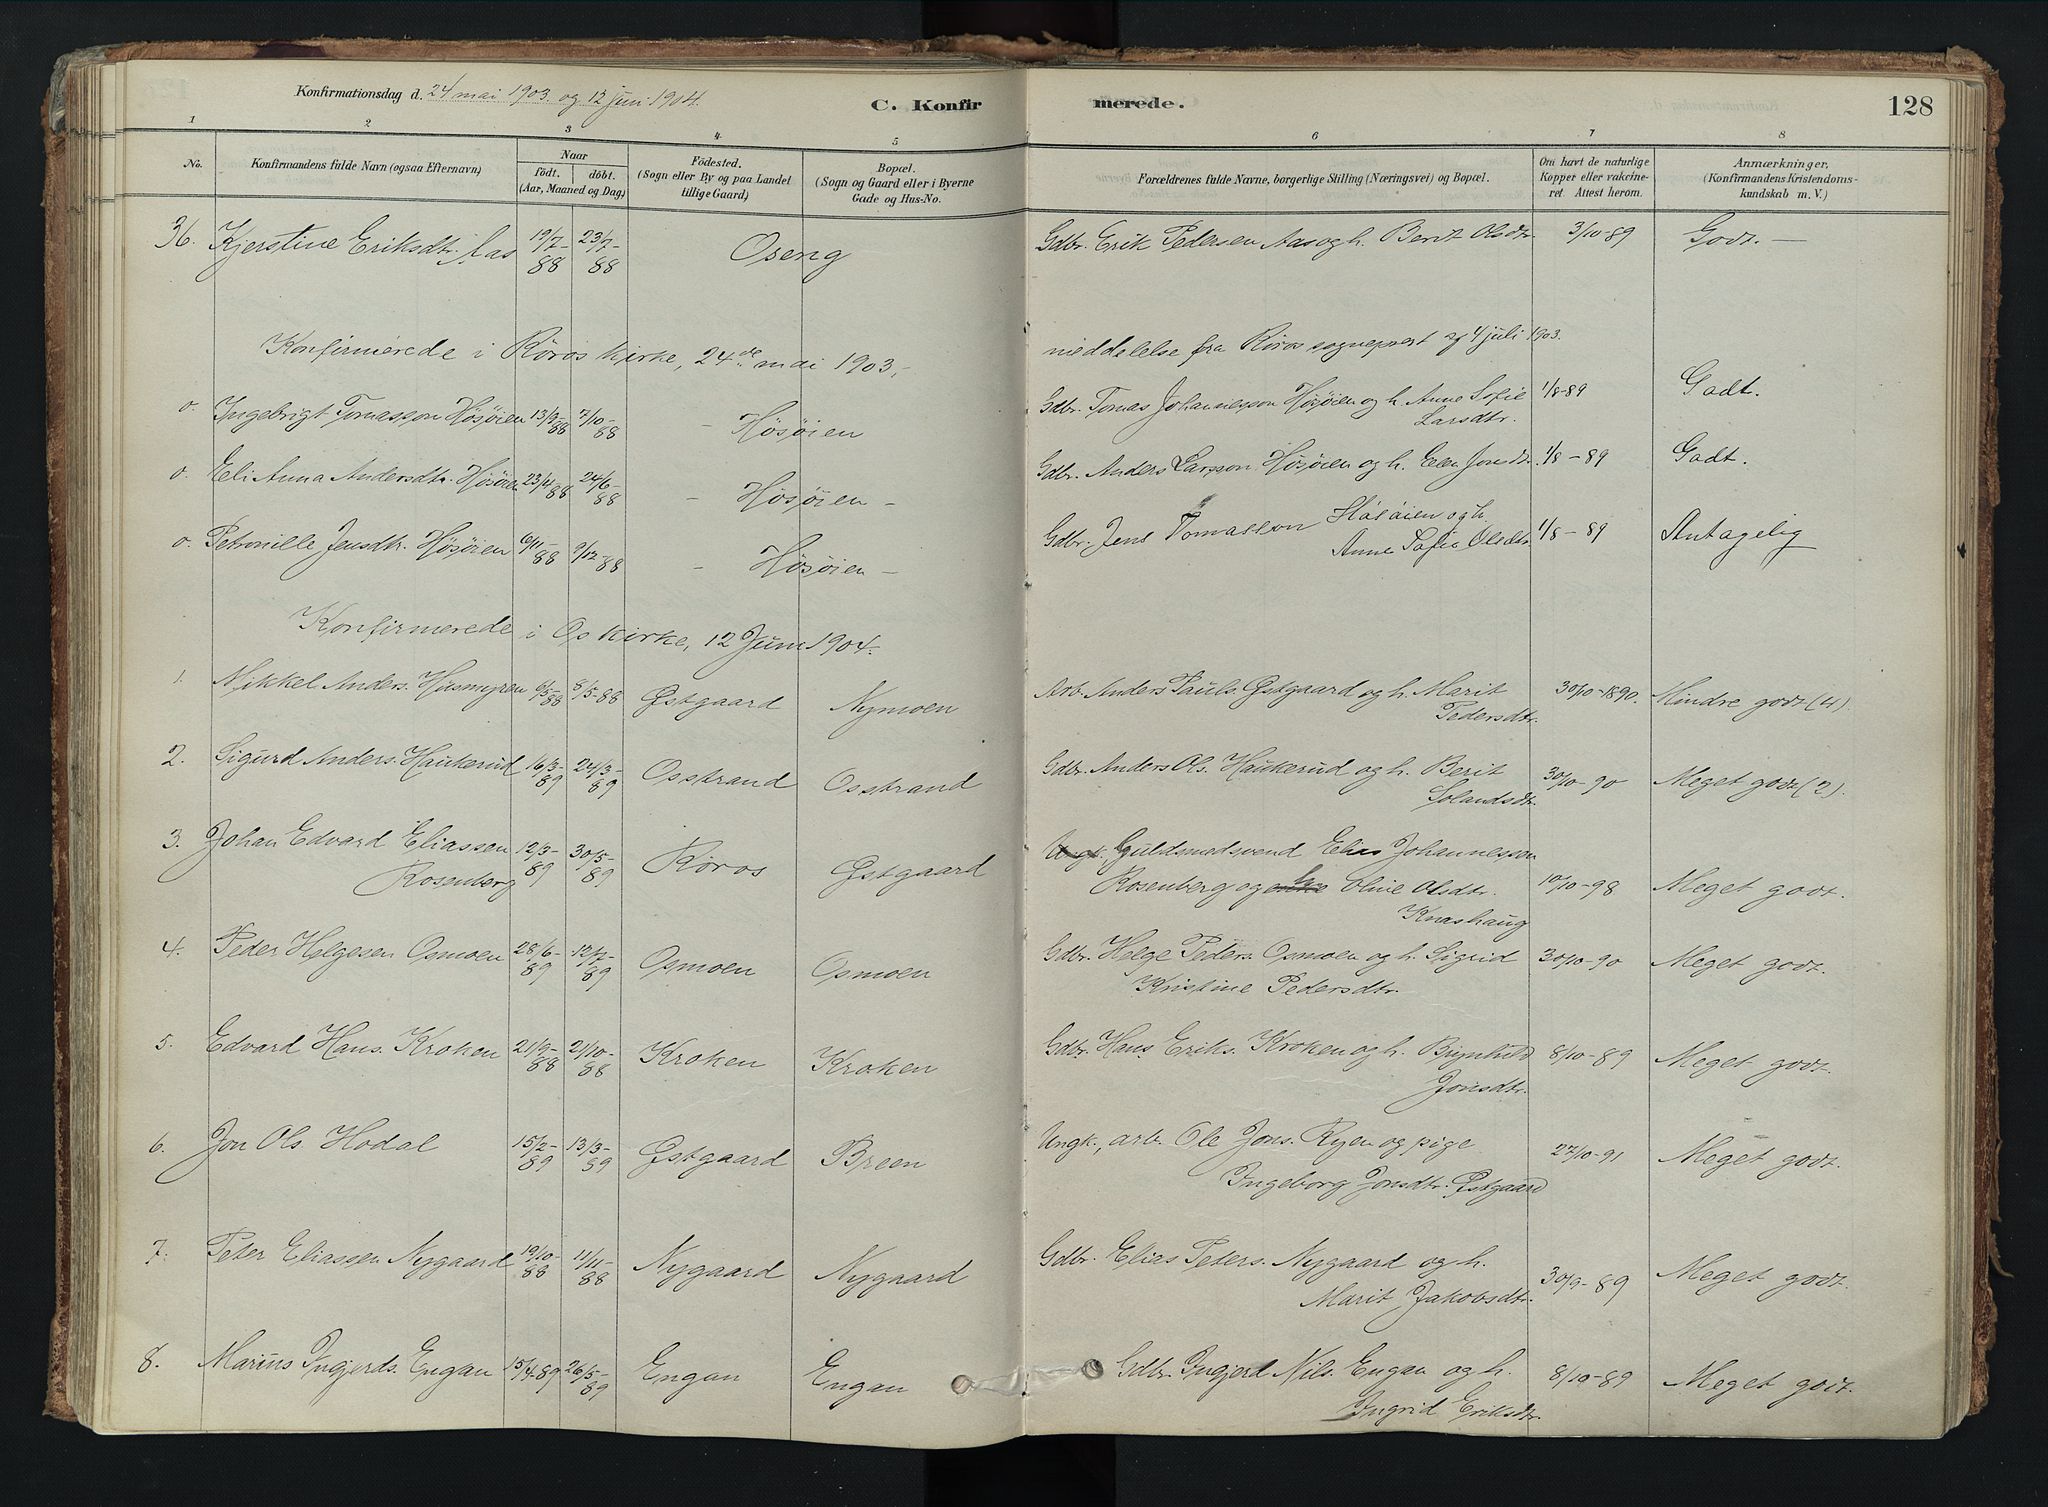 Konfirmationsdag d. 24 mai 1903 og 12 juni 1904.
C. Konfirmerede.
128
1 2 3 4 5 6 7 8
No. Konfirmandens fulde Navn (ogsaa Efternavn) Naar födt. döbt. (Aar, Maaned og Dag) Födested. (Sogn eller By og paa Landet tillige Gaard) Bopæl. (Sogn og Gaard eller i Byerne Gade og Hus-No. Forældrenes fulde Navne, borgerlige Stilling (Næringsvei) og Bopæl. Om havt de naturlige Kopper eller vakcineret. Attest herom. Anmærkninger, (Konfirmandens Kristendomskundskab m. V.)
36. Kjerstine Eriksdt. Aas 19/7-88 23/7-88 Oseng Gdbr. Erik Pedersen Aas og h. Berit Olsdtr. 3/10-89 Godt. -
Konfirmerede i Røros kirke, 24de mai 1903,- meddelelse fra Røros sogneprest af 4 juli 1903.
o. Ingebrigt Tomasson Høsøien 13/9-88 7/10-88 - Høsøien Gdbr. Tomas Johannesson Høsøien og h. Anne Sofie Larsdtr. 1/8-89 Godt.
o. Eli Anna Andersdtr. Høsøien 23/4 88 24/6-88 - Høsøien - Gdbr. Anders Larsson Høsøien og h. Elen Jonsdtr. 1/8-89 Godt.
o. Petronille Jensdtr. Høsøien 6/11-88 9/12-88 - Høsøien - Gdbr. Jens Tomasson Høsøien og h. Anne Sofie Olsdtr. 1/8-89 Antagelig
Konfirmerede i Os kirke, 12 Juni 1904.
1. Mikkel Anders. Husmyren 6/5-88 8/5-88 Østgaard Nymoen Arb. Anders Pauls. Østgaard og h. Marit Pedersdtr. 30/10-1890. Mindre godt (4).
2. Sigurd Anders. Haukerud 16/3-89 24/3-89 Osstrand Osstrand Gdbr. Anders Ols. Haukerud og h. Berit Eolandsdtr. 30/10-90 Meget godt (2).
3. Johan Edvard Eliassen Rosenberg 12/3-89 30/5-89 Røros Østgaard Ungk. Guldsmedsvend Elias Johannesson Rosenberg og h. Oline Olsdtr. Knashaug 10/10-98 Meget godt.
4. Peder Helgesen Osmoen 28/6-89 12/7-89 Osmoen Osmoen Gdbr. Helge Peders. Osmoen og h. Sigrid Kristine Pedersdtr. 30/10-90 Meget godt.
5. Edvard Hans. Kroken 21/9-88 21/10-88 Kroken Kroken Gdbr. Hans Eriks. Kroken og h. Brynhild Jonsdtr. 8/10-89 Meget godt.
6. Jon Ols. Hodal 15/2-89 13/3-89 Østgaard Breen Ungk., arb. Ole Jons. Ryen og pige Ingeborg Jonsdtr. Østgaard 27/10-91 Meget godt.
7. Peter Eliassen Nygaard 19/10-88 11/11-88 Nygaard Nygaard Gdbr. Elias Peters. Nygaard og h. Marit Jakobsdtr. 30/9-89 Meget godt.
8. Marius Ingjerds. Engan 15/4-89 26/5-89 Engan Engan Gdbr. Ingjerd Nils. Engan og h. Ingrid Eriksdtr. 8/10-89 Meget godt.